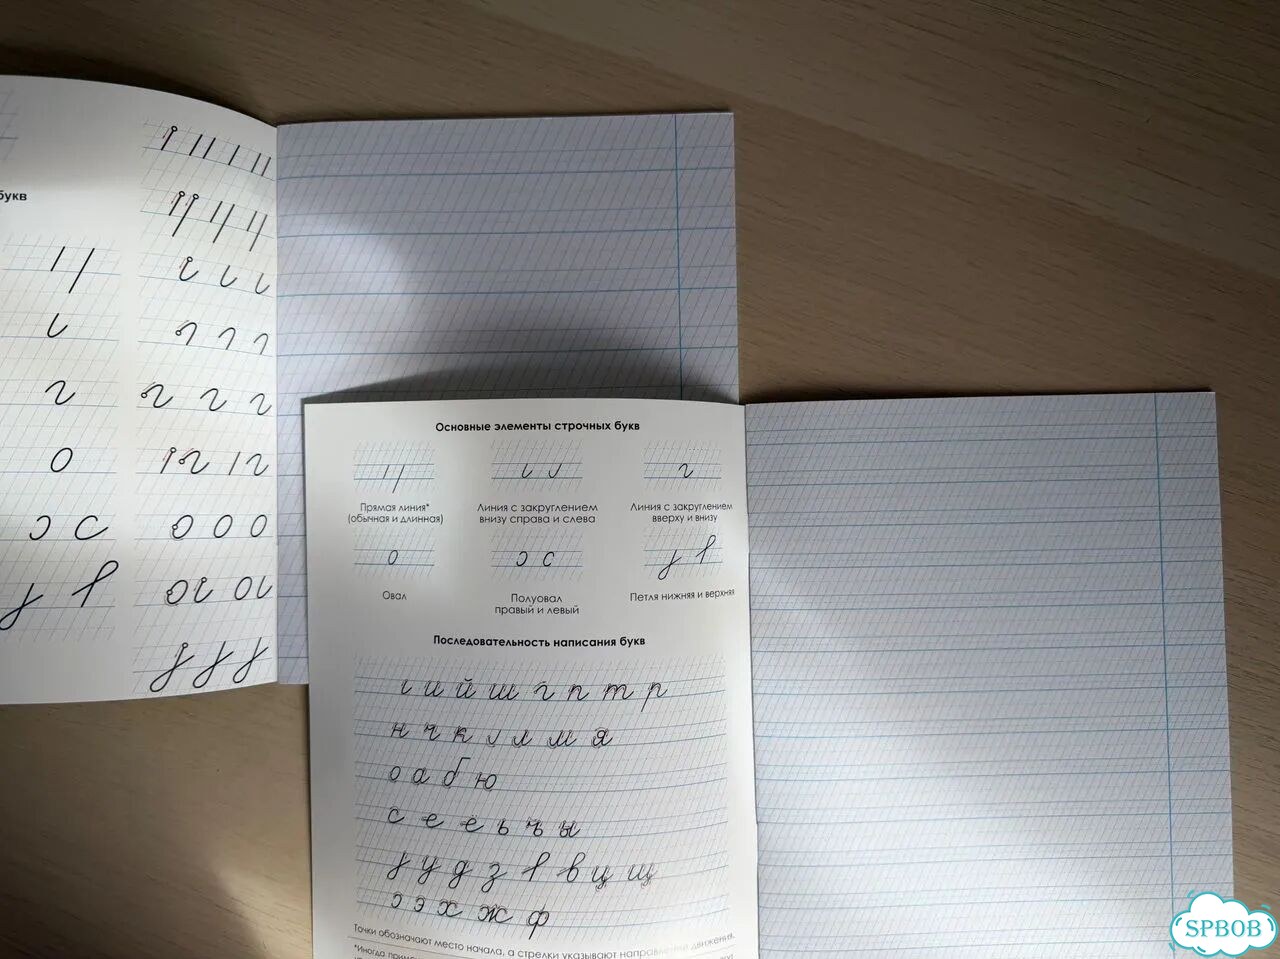 букв
Основные элементы строчных букв
Прямая линия*
(обычная и длинная)
Линия с закруглением
внизу справа и слева
Линия с закруглением
вверху и внизу
Овал
Полуовал
правый и левый
Петля нижняя и верхняя
Последовательность написания букв
и й ш г п т р
н ч к л м я
о а б ю
с е ё ь ъ ы
у д з в ц щ
э х ж ф
Точки обозначают место начала, а стрелки указывают направление движения.
*Иногда
SPBOB